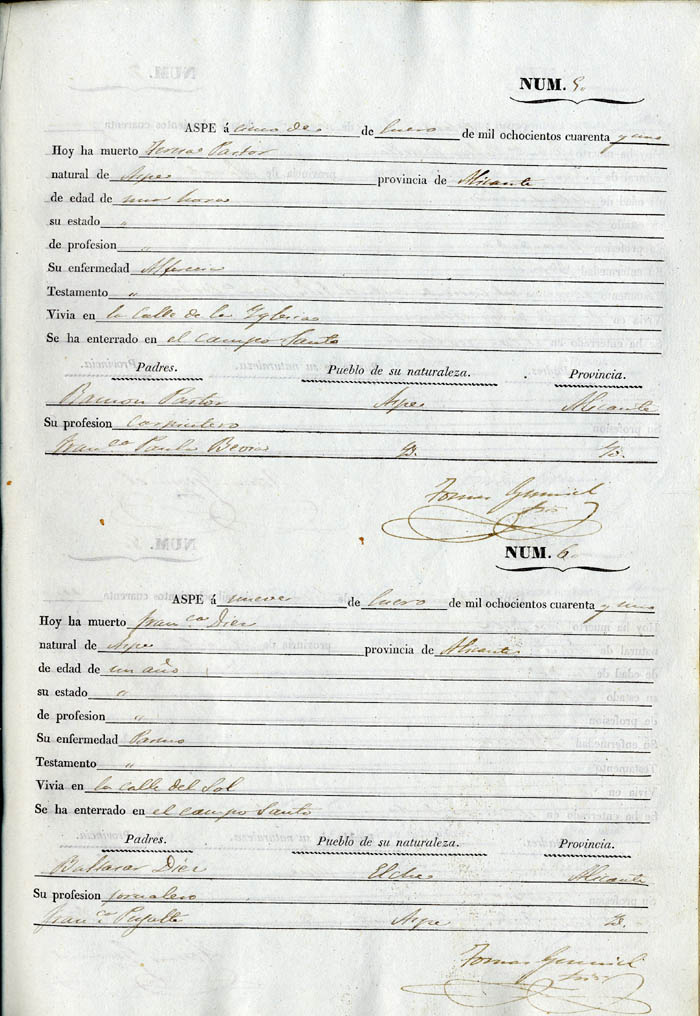 NUM. 5.
ASPE á cinco de de Enero de mil ochocientos cuarenta y uno
Hoy ha muerto Pastor
natural de Aspe provincia de Alicante
de edad de horas
su estado "
de profesion "
Su enfermedad Alferecia
Testamento "
Vivia en la calle de la Yglesia
Se ha enterrado en el campo Santo
Padres. Pueblo de su naturaleza. Provincia.
Ramon Pastor Aspe Alicante
Su profesion Carpintero
Fran.ca Paula Yd. Yd.
Tomas
NUM. 6.
ASPE á nueve de Enero de mil ochocientos cuarenta y uno
Hoy ha muerto Fran.ca Diez
natural de Aspe provincia de Alicante
de edad de un año
su estado "
de profesion "
Su enfermedad
Testamento "
Vivia en la calle del Sol
Se ha enterrado en el campo Santo
Padres. Pueblo de su naturaleza. Provincia.
Baltasar Diez Elche Alicante
Su profesion jornalero
Fran.ca Aspe Yd.
Tomas